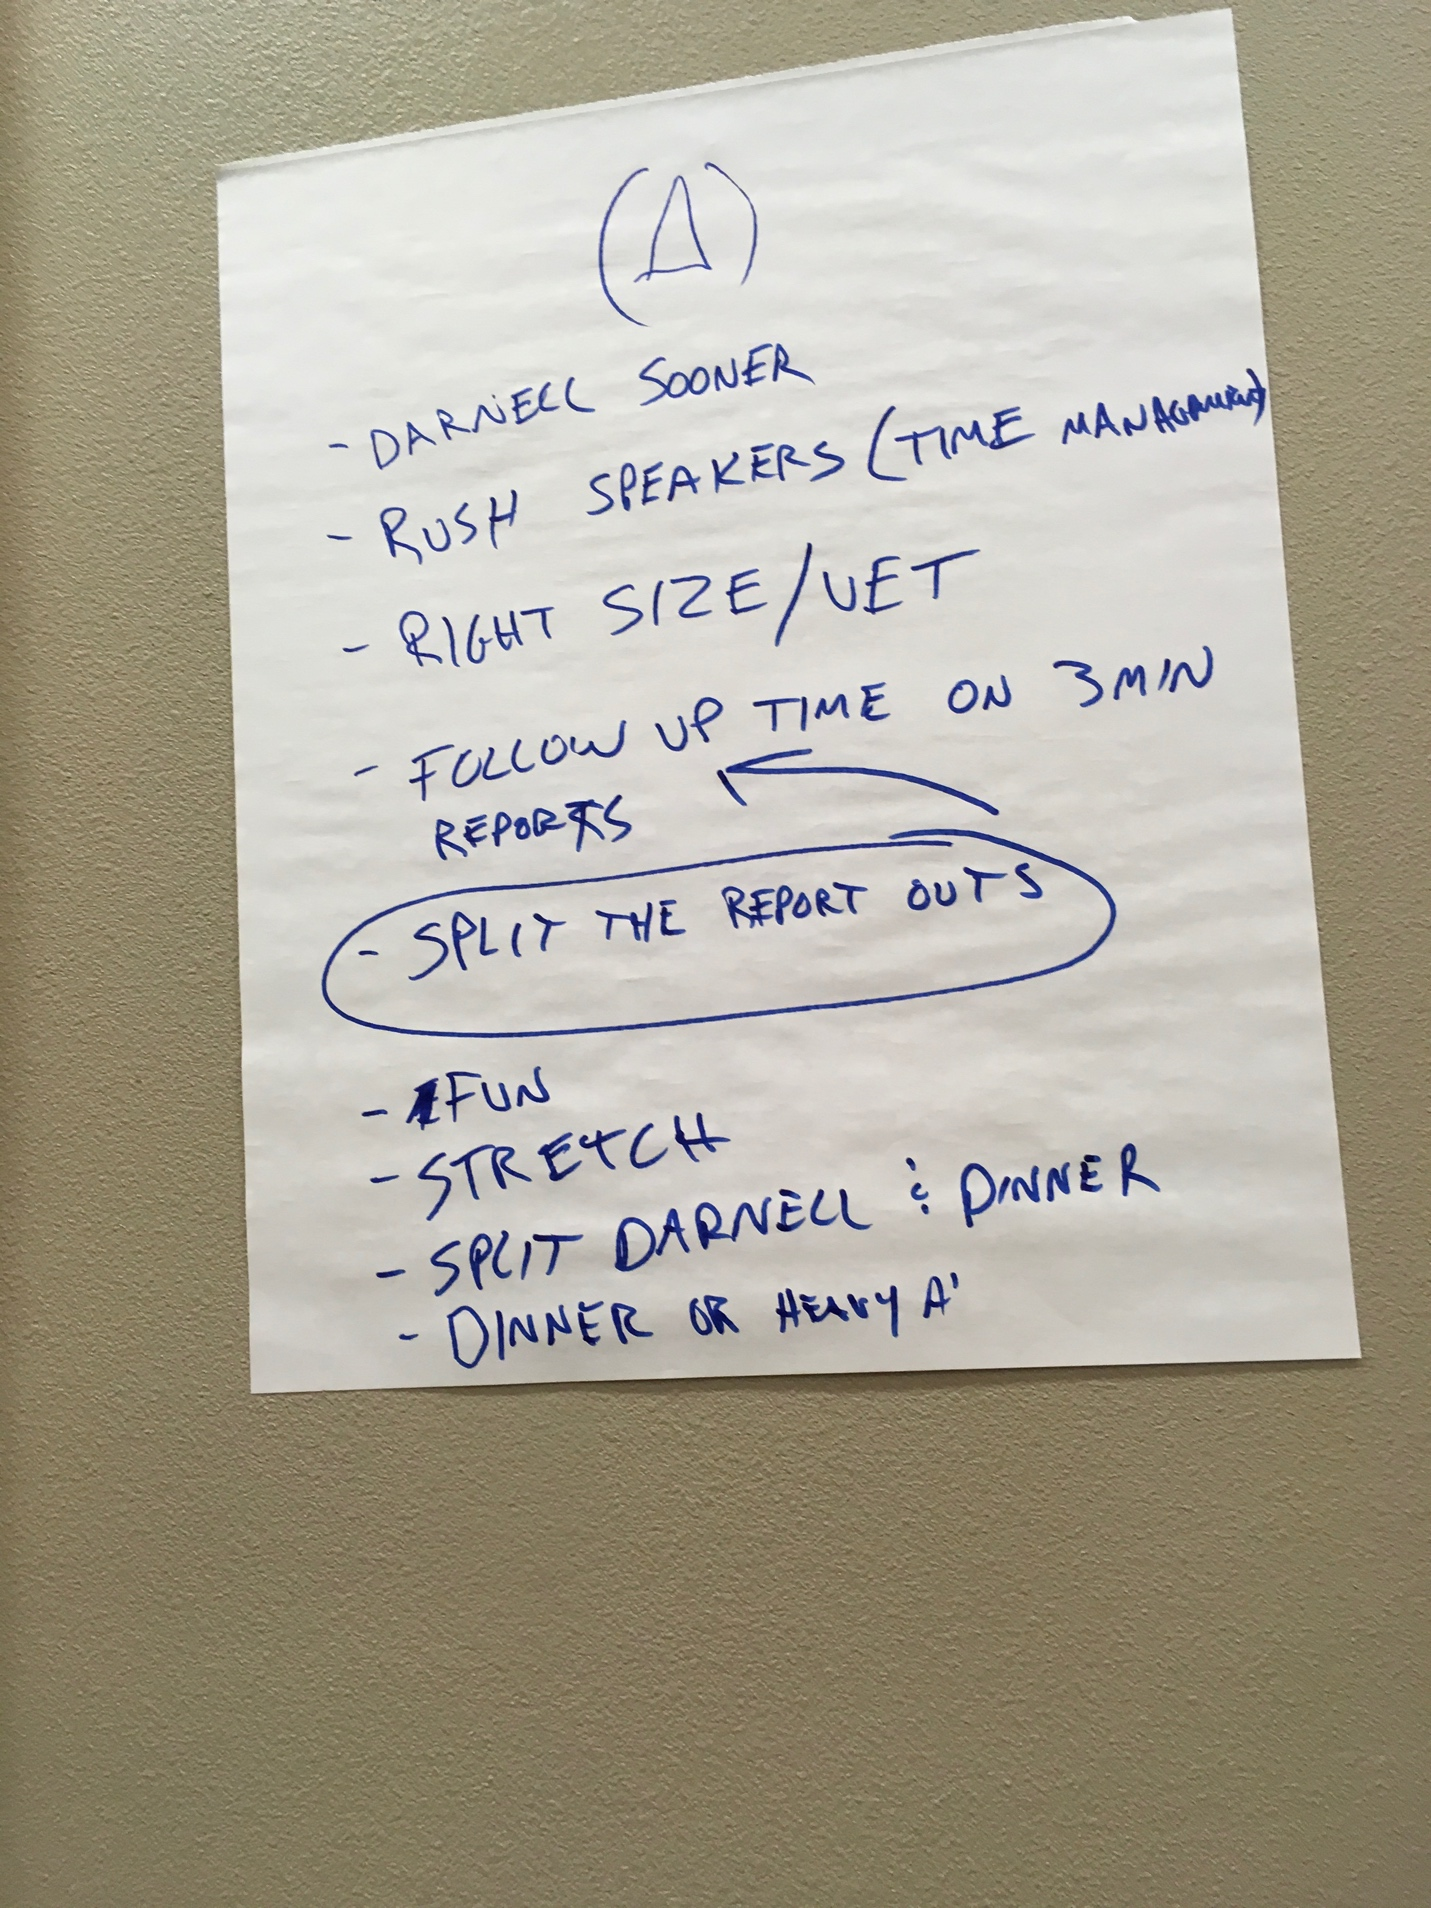 (Δ)
- DARNELL SOONER
- RUSH SPEAKERS (TIME MANAGEMENT)
- RIGHT SIZE/VET
- FOLLOW UP TIME ON 3 MIN
REPORTS
- SPLIT THE REPORT OUTS
- FUN
- STRETCH
- SPLIT DARNELL & DINNER
- DINNER OR HEAVY A'